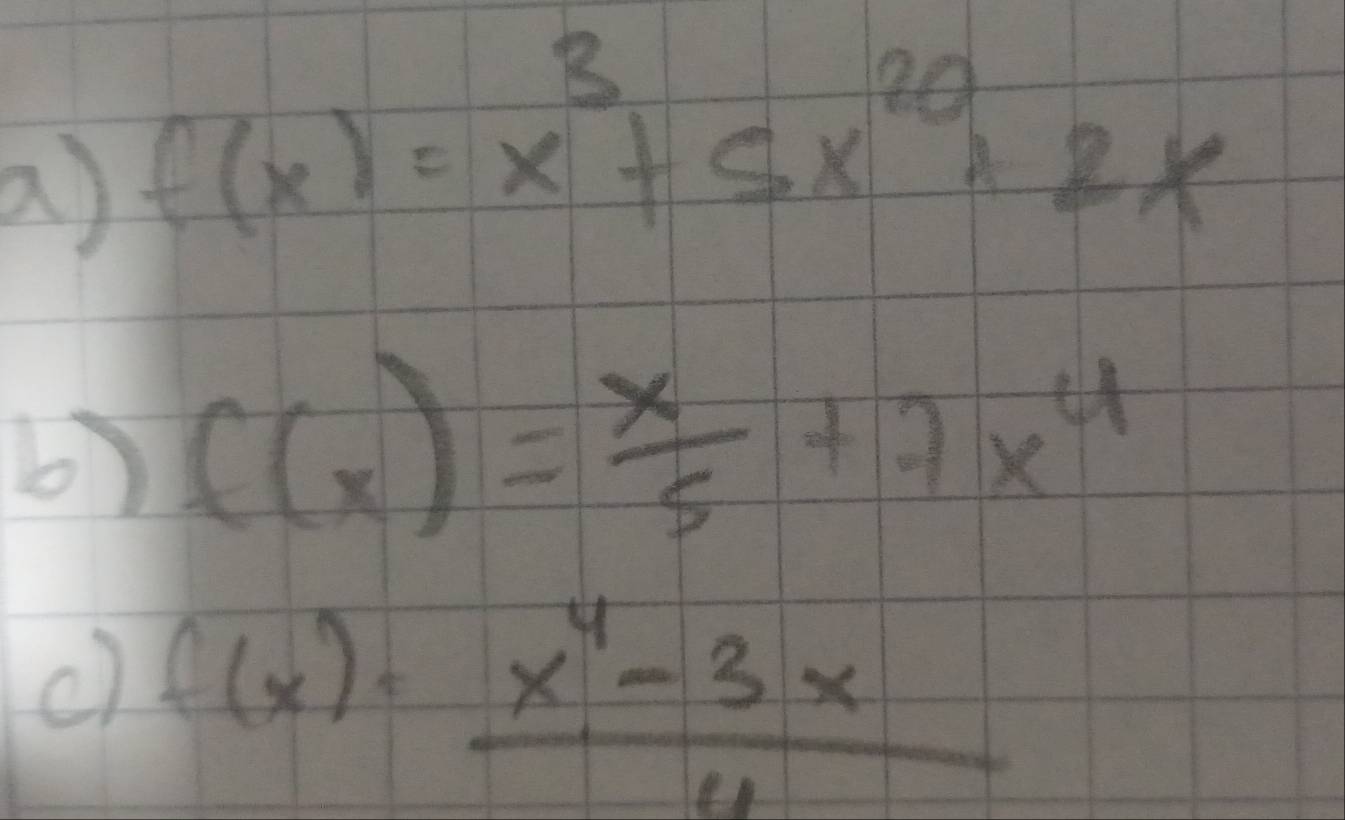 a) f(x) = x³ + 5x²⁰ + 2x
b) f(x) = x/5 + 7x⁴
c) f(x) = (x⁴ - 3x)/4